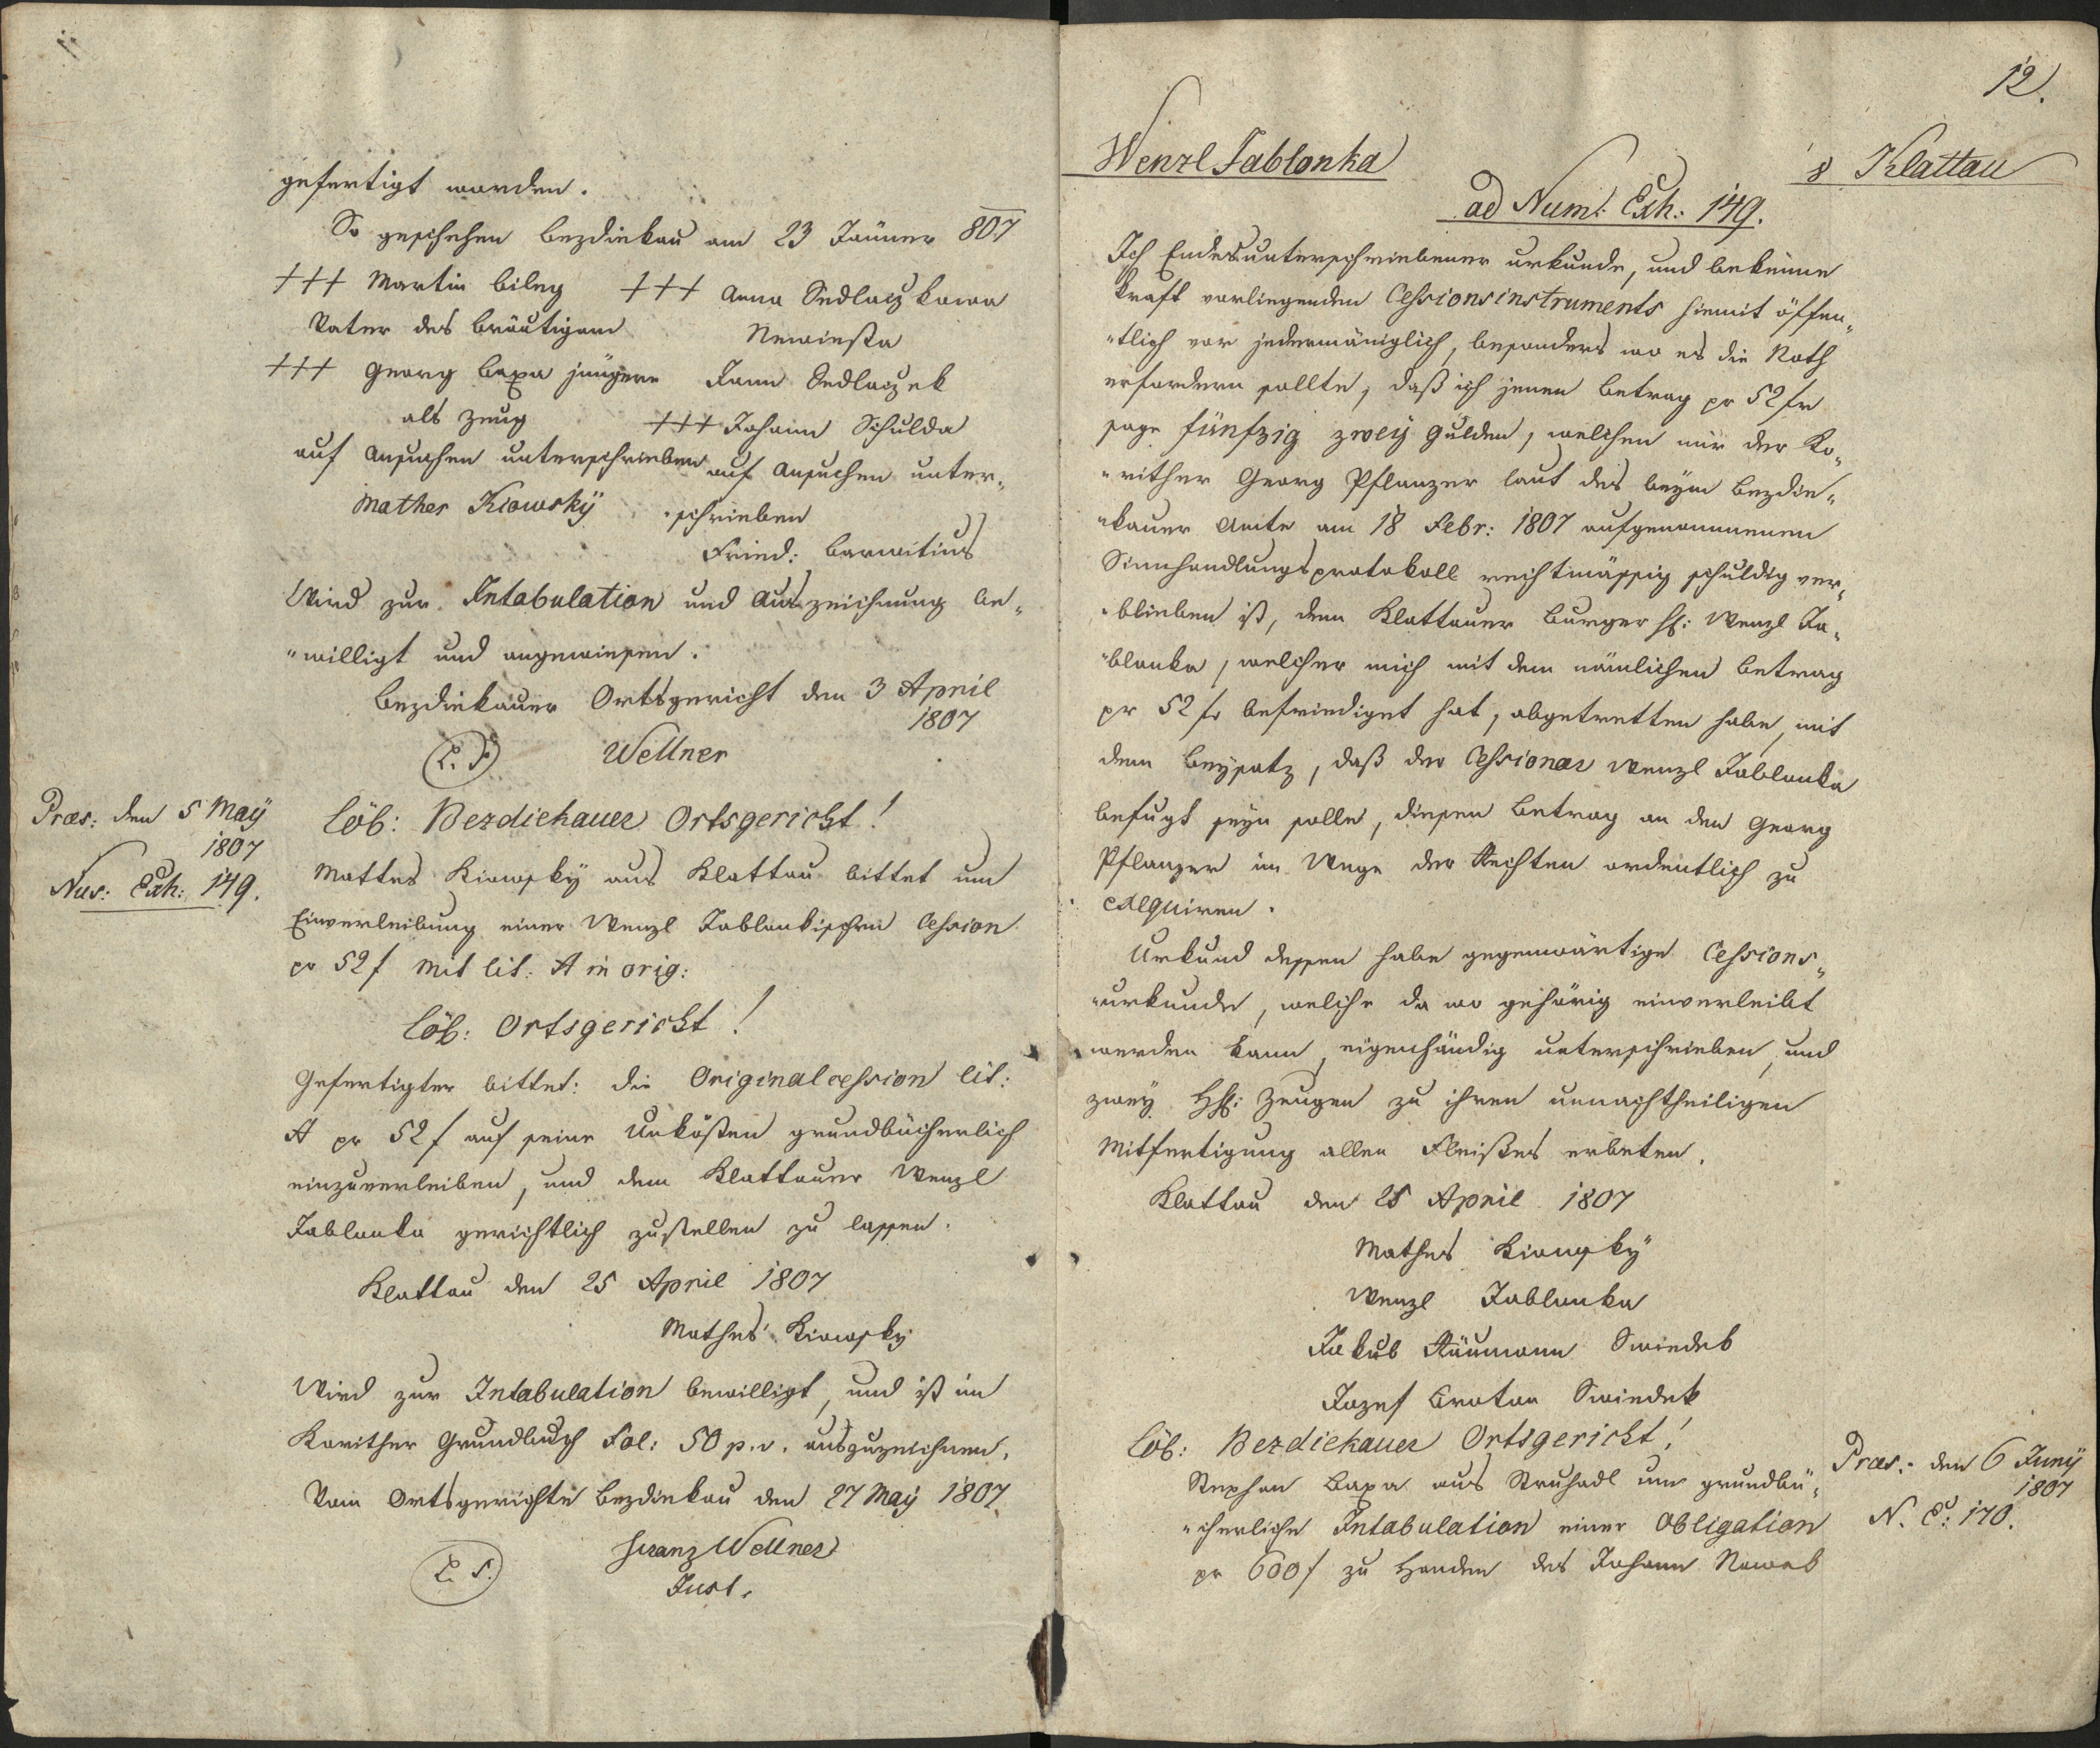 gefertigt worden.
So geschehen Bezdiekau am 23 Jänner 807
+++ Martin Bileg +++ Anna Sedlaczkowa
Vater des Bräutigam Newiesta
+++ Georg Baxa jüngere Jann Sedlaczek
als Zeug +++ Johann Schulda
auf Ansuchen unterschrieben auf Ansuchen unter„
Mathes Kiowskÿ „schrieben
Fried: Barwitius
Wird zur Intabulation und Auszeichnung be„
„willigt und angewiesen.
Bezdiekauer Ortsgericht den 3 April
1807
L. S. Wellner
Præs: den 5 Maÿ
1807
Nus: Exh: 149.
Löb: Bezdiekauer Ortsgericht!
Mattes Kiowskÿ aus Klattau bittet um
Einverleibung einer Wenzl Jablonkischen Cession
pr 52 f mit lit: A in orig:
Löb: Ortsgericht!
Gefertigter bittet: die Originalcession lit:
A pr 52 f auf seine Unkösten grundbücherlich
einzuverleiben, und dem Klattauer Wenzl
Jablonka gerichtlich zustellen zu lassen.
Klattau den 25 April 1807
Mathes Kiowskÿ
Wird zur Intabulation bewilligt, und ist im
Korither Grundbuch Fol: 50 p. v. auszuzeichnen.
Vom Ortsgerichte Bezdiekau den 27 Maÿ 1807
L. S. Franz Wellner
Just.
12.
Wenzl Jablonka
8 Klattau
ad Num: Exh: 149.
Ich Endesunterschriebener urkunde, und bekenne
kraft vorliegenden Cessionsinstruments hiemit öffen„
„tlich vor jedermäniglich, besonders wo es die Noth
erfordern sollte, daß ich jenen Betrag pr 52 fr
sage fünfzig zweÿ Gulden, welchen mir der Ko„
„rither Georg Pflanzer laut des beÿm Bezdie„
„kauer Amte am 18 Febr: 1807 aufgenommenen
Simhandlungsprotokoll rechtmässig schuldig ver„
„blieben ist, dem Klattauer Burger H: Wenzl Ja„
„blonka, welcher mich mit dem nämlichen Betrag
pr 52 fr befriediget hat, abgetretten habe, mit
dem Beÿsatz, daß der Cessionar Wenzl Jablonka
befugt seÿn solle, diesen Betrag an den Georg
Pflanzer im Wege der Rechten ordentlich zu
exequiren.
Urkund dessen habe gegenwärtige Cessions„
„urkunde, welche da wo gehörig einverleibt
werden kann, eigenhändig unterschrieben, und
zweÿ HH: Zeugen zu ihren unnachtheiligen
Mitfertigung allen Fleißes erbeten.
Klattau den 25 April 1807
Mathes Kiowskÿ
Wenzl Jablonka
Jakub Swiedek
Jozef Swiedek
Löb: Bezdiekauer Ortsgericht!
Stephan Baxa aus Struhadl um grundbü„
„cherliche Intabulation einer Obligation
pr 600 f zu Handen des Johann Nowak
Præs: den 6 Junÿ
1807
N. E: 170.